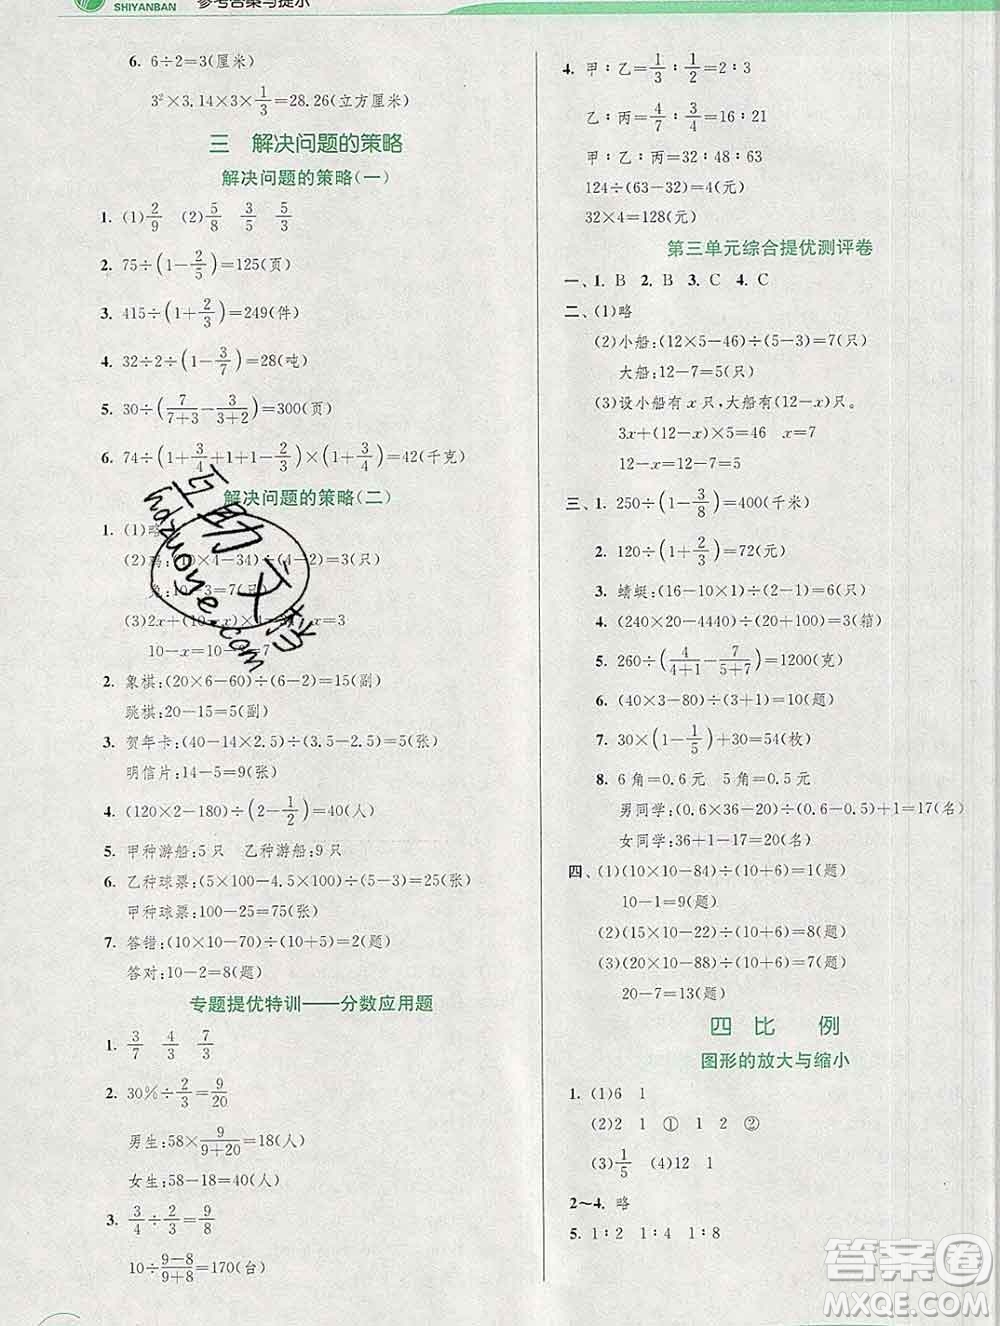 SHIYANBAN 参考答案与提示
6. 6÷2=3(厘米)
3²×3.14×3×1/3=28.26(立方厘米)
三 解决问题的策略
解决问题的策略(一)
1. (1)2/9 (2)5/8 3/5 5/3
2. 75÷(1-2/5)=125(页)
3. 415÷(1+2/3)=249(件)
4. 32÷2÷(1-3/7)=28(吨)
5. 30÷(7/(7+3)-3/(3+2))=300(页)
6. 74÷(1+3/4+1+1-2/3)×(1+3/4)=42(千克)
解决问题的策略(二)
1. (1)略
(2)鸡:(10×4-34)÷(4-2)=3(只)
兔:10-3=7(只)
(3)2x+(10-x)×4=34 x=3
10-x=10-3=7
2. 象棋:(20×6-60)÷(6-2)=15(副)
跳棋:20-15=5(副)
3. 贺年卡:(40-14×2.5)÷(3.5-2.5)=5(张)
明信片:14-5=9(张)
4. (120×2-180)÷(2-1/2)=40(人)
5. 甲种游船:5只 乙种游船:9只
6. 乙种球票:(5×100-4.5×100)÷(5-3)=25(张)
甲种球票:100-25=75(张)
7. 答错:(10×10-70)÷(10+5)=2(题)
答对:10-2=8(题)
专题提优特训——分数应用题
1. 3/7 4/3 7/3
2. 30%÷2/3=9/20
男生:58×9/(9+20)=18(人)
女生:58-18=40(人)
3. 3/4÷2/3=9/8
10÷(9-8)/(9+8)=170(台)
4. 甲∶乙=1/3∶1/2=2∶3
乙∶丙=4/7∶3/4=16∶21
甲∶乙∶丙=32∶48∶63
124÷(63-32)=4(元)
32×4=128(元)
第三单元综合提优测评卷
一、1. B 2. B 3. C 4. C
二、(1)略
(2)小船:(12×5-46)÷(5-3)=7(只)
大船:12-7=5(只)
(3)设小船有x只,大船有(12-x)只。
3x+(12-x)×5=46 x=7
12-x=12-7=5
三、1. 250÷(1-3/8)=400(千米)
2. 120÷(1+2/3)=72(元)
3. 蜻蜓:(16-10×1)÷(2-1)=6(只)
4. (240×20-4440)÷(120)=3(箱)
5. 260÷(4/(4+1)-7/(5+7))=1200(克)
6. (40×3-80)÷(3+1)=10(题)
7. 30×(1-1/5)+30=54(枚)
8. 6角=0.6元 5角=0.5元
男同学:(0.6×36-20)÷(0.6-0.5)+1=17(名)
女同学:36+1-17=20(名)
四、(1)(10×10-84)÷(10+6)=1(题)
10-1=9(题)
(2)(15×10-22)÷(10+6)=8(题)
(3)(20×10-88)÷(10+6)=7(题)
20-7=13(题)
四 比 例
图形的放大与缩小
1. (1)6 1
(2)2 1 ① 1 2 ②
(3)1/5 (4)12 1
2~4. 略
5. 1∶2 1∶4 1∶8
互助文档
hdzuoye.com
答案圈
MXQE.COM